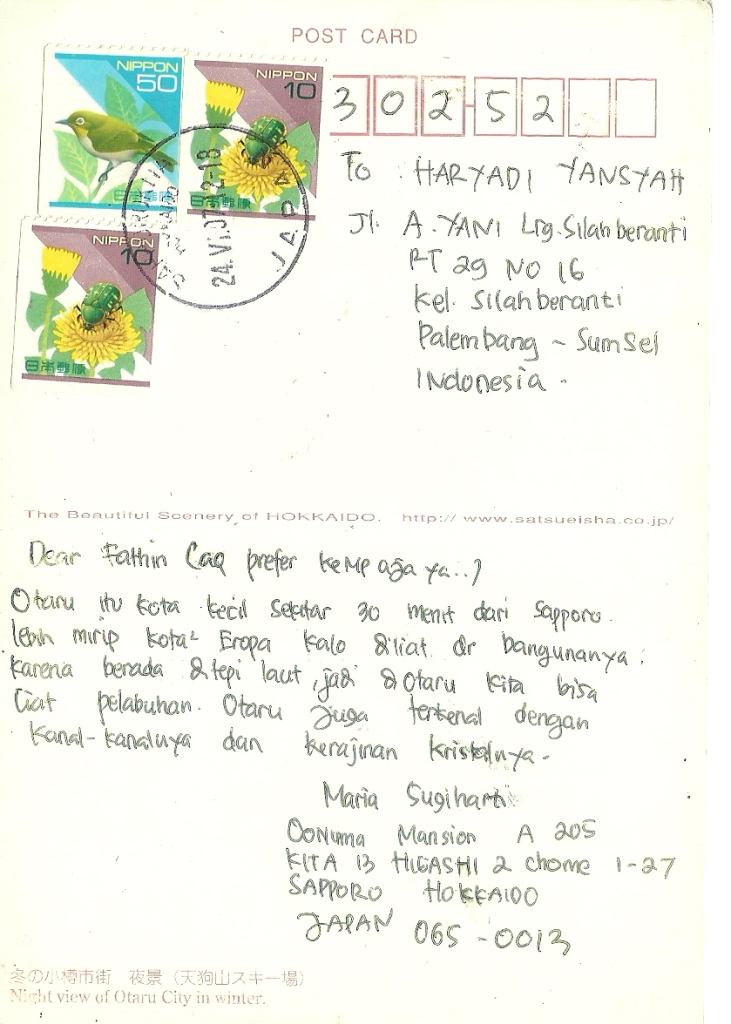 POST CARD
NIPPON
50
日本郵便
NIPPON
10
日本郵便
NIPPON
10
日本郵便
24.VI.07 12-18
JAPAN
30252
To HARYADI YANSYAH
Jl. A. YANI Lrg. Silahberanti
RT 29 NO 16
kel. Silahberanti
Palembang - Sumsel
INdonesia.
The Beautiful Scenery of HOKKAIDO. http://www.satsueisha.co.jp/
Dear Fathin Caq prefer ke MP aja ya..?
Otaru itu kota kecil sekitar 30 menit dari Sapporo.
lebih mirip kota² Eropa kalo diliat dr bangunanya.
karena berada di tepi laut, jadi di Otaru kita bisa
liat pelabuhan. Otaru juga terkenal dengan
kanal-kanalnya dan kerajinan kristalnya.
Maria Sugiharti
OONUMA Mansion A 205
KITA 13 HIGASHI 2 chome 1-27
SAPPORO HOKKAIDO
JAPAN 065-0013
冬の小樽市街 夜景（天狗山スキー場）
Night view of Otaru City in winter.